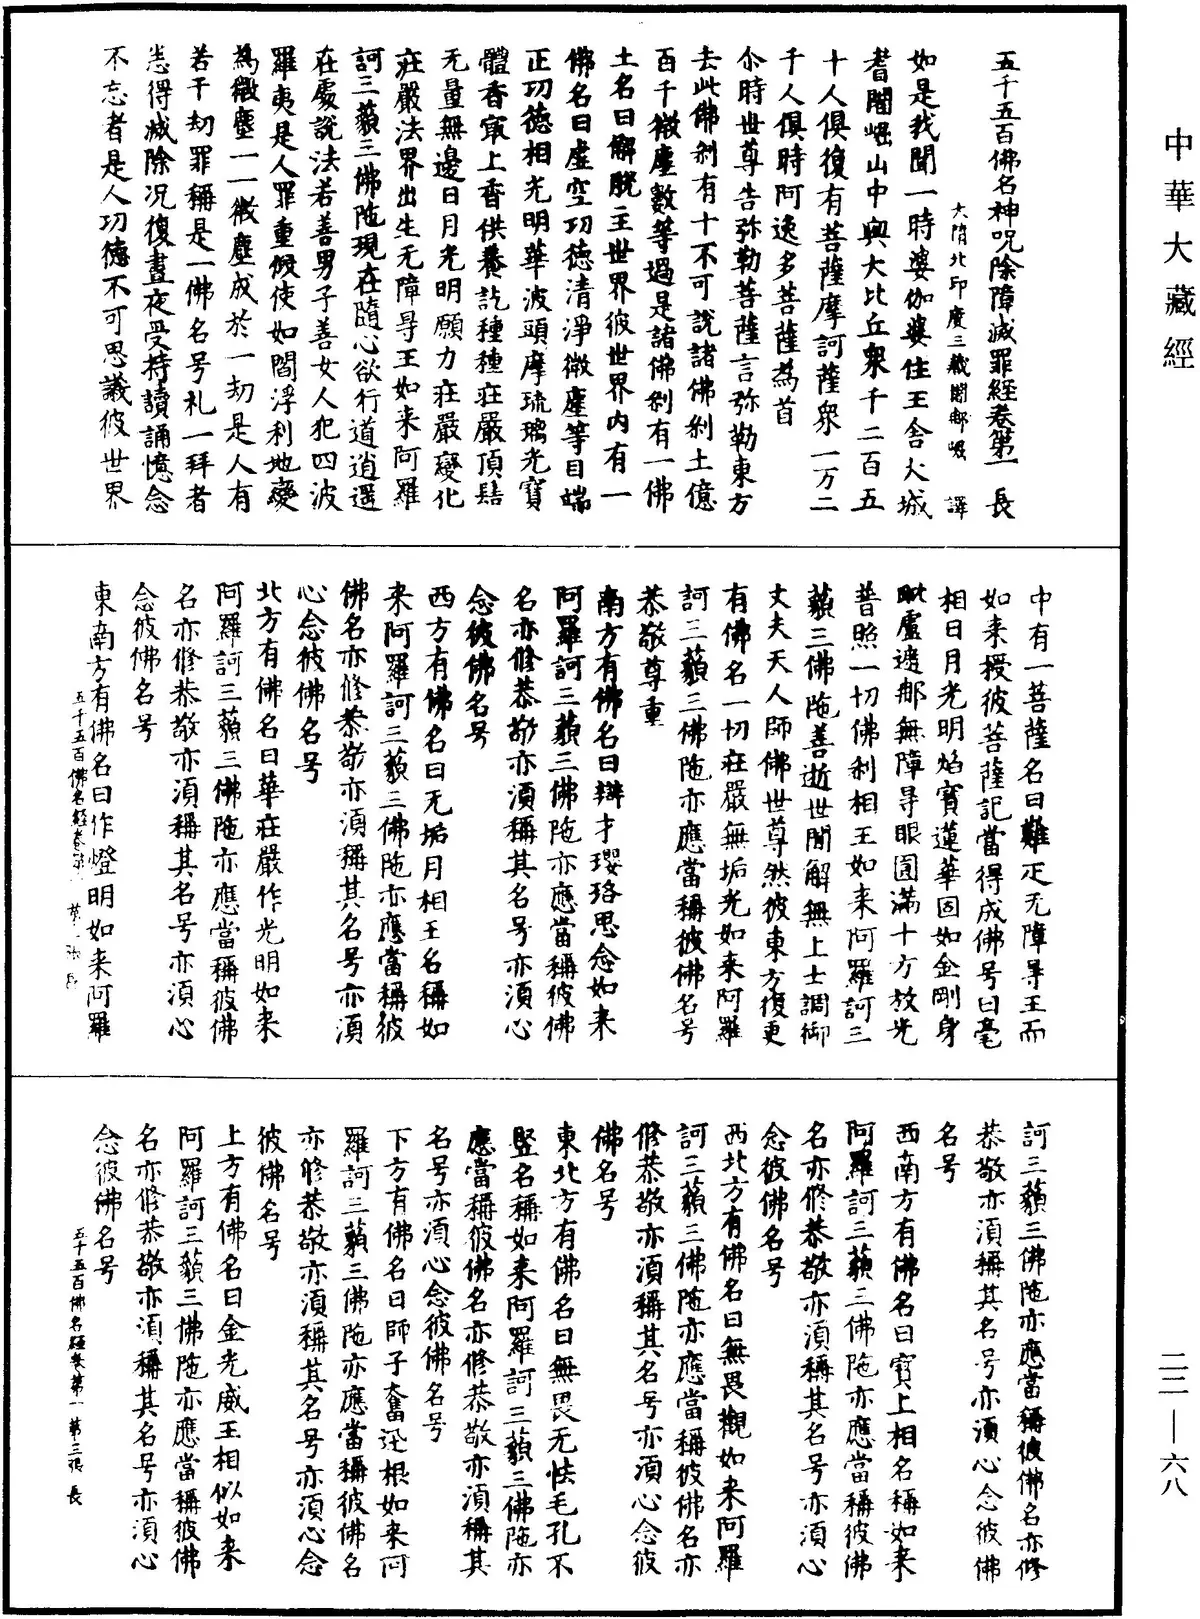 中華大藏經
五千五百佛名神呪除障滅罪經卷第一 長
大隋北印度三藏闍那崛 譯
如是我聞一時婆伽婆住王舍大城
耆闍崛山中與大比丘衆千二百五
十人俱復有菩薩摩訶薩衆一万二
千人俱時阿逸多菩薩為首
尒時世尊告弥勒菩薩言弥勒東方
去此佛刹有十不可說諸佛刹土億
百千微塵數等過是諸佛刹有一佛
土名曰解脫主世界彼世界內有一
佛名曰虛空功德清淨微塵等目端
正功德相光明華波頭摩琉璃光寶
體香㝡上香供養訖種種莊嚴頂髻
无量無邊日月光明願力莊嚴變化
莊嚴法界出生无障㝵王如来阿羅
訶三藐三佛陁現在隨心欲行道逍遥
在處說法若善男子善女人犯四波
羅夷是人罪重假使如閻浮利地變
為微塵一一微塵成於一劫是人有
若干劫罪稱是一佛名号礼一拜者
悉得滅除况復晝夜受持讀誦憶念
不忘者是人功德不可思議彼世界
中有一菩薩名曰難疋无障㝵王而
如来授彼菩薩記當得成佛号曰毫
相日月光明焰寶蓮華固如金剛身
毗盧遮那無障㝵眼圓滿十方放光
普照一切佛刹相王如来阿羅訶三
藐三佛陁善逝世間解無上士調御
丈夫天人師佛世尊然彼東方復更
有佛名一切莊嚴無垢光如来阿羅
訶三藐三佛陁亦應當稱彼佛名号
恭敬尊重
南方有佛名曰辯才瓔珞思念如来
阿羅訶三藐三佛陁亦應當稱彼佛
名亦修恭敬亦須稱其名号亦須心
念彼佛名号
西方有佛名曰无垢月相王名稱如
来阿羅訶三藐三佛陁亦應當稱彼
佛名亦修恭敬亦須稱其名号亦須
心念彼佛名号
北方有佛名曰華莊嚴作光明如来
阿羅訶三藐三佛陁亦應當稱彼佛
名亦修恭敬亦須稱其名号亦須心
念彼佛名号
五千五百佛名經卷第一 第二張 長
東南方有佛名曰作燈明如来阿羅
訶三藐三佛陁亦應當稱彼佛名亦修
恭敬亦須稱其名号亦須心念彼佛
名号
西南方有佛名曰寶上相名稱如来
阿羅訶三藐三佛陁亦應當稱彼佛
名亦修恭敬亦須稱其名号亦須心
念彼佛名号
西北方有佛名曰無畏觀如来阿羅
訶三藐三佛陁亦應當稱彼佛名亦
修恭敬亦須稱其名号亦須心念彼
佛名号
東北方有佛名曰無畏无怯毛孔不
竪名稱如来阿羅訶三藐三佛陁亦
應當稱彼佛名亦修恭敬亦須稱其
名号亦須心念彼佛名号
下方有佛名曰師子奮迅根如来阿
羅訶三藐三佛陁亦應當稱彼佛名
亦修恭敬亦須稱其名号亦須心念
彼佛名号
上方有佛名曰金光威王相似如来
阿羅訶三藐三佛陁亦應當稱彼佛
名亦修恭敬亦須稱其名号亦須心
念彼佛名号
五千五百佛名經卷第一 第三張 長
二二—六八